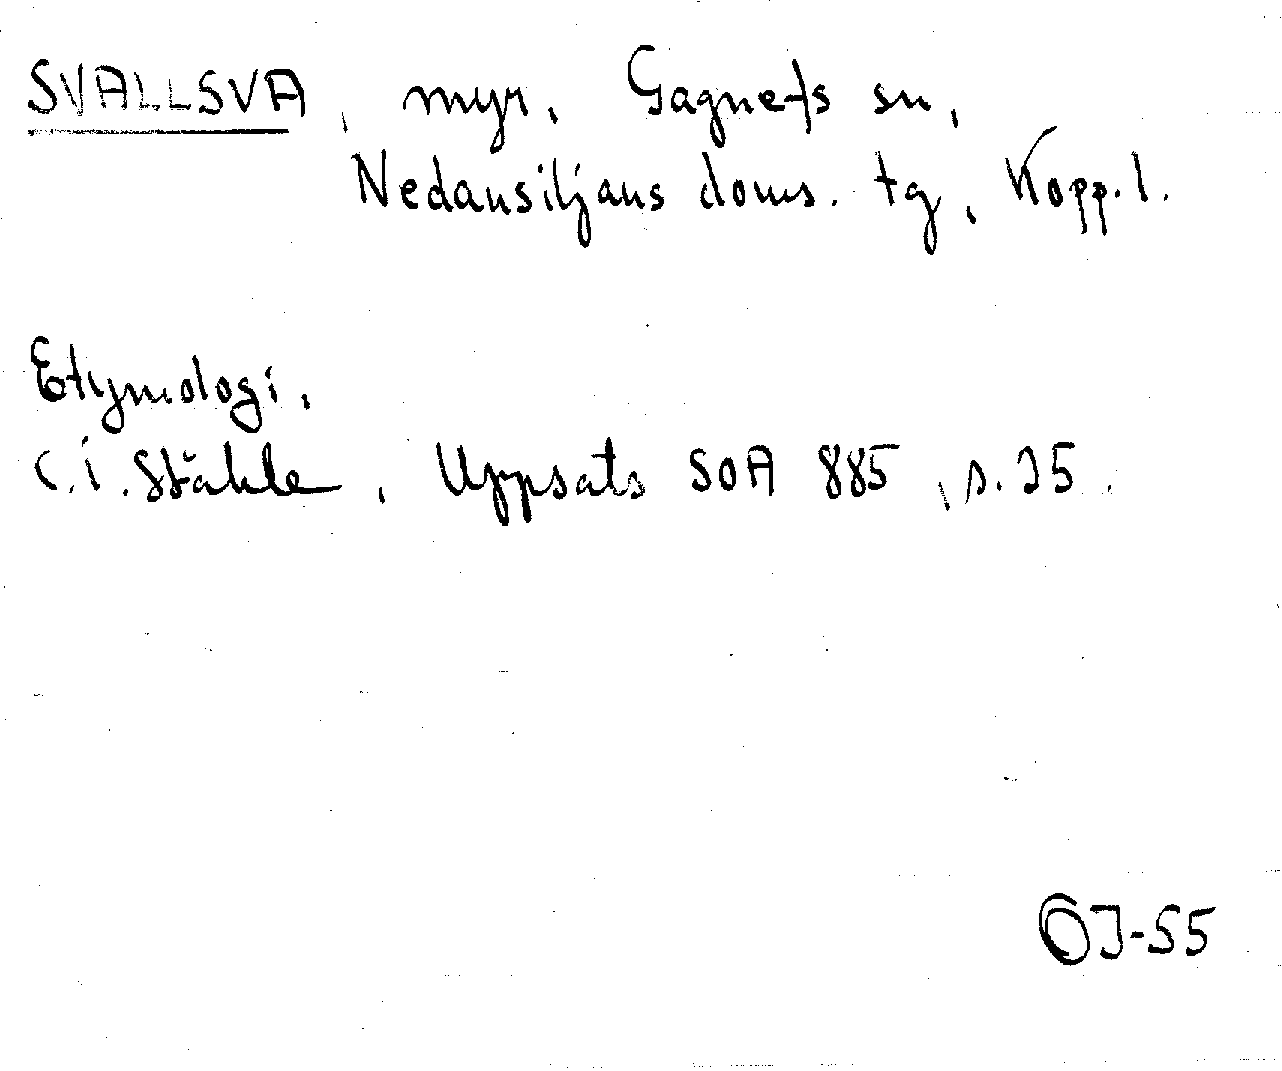 SVALLSVA, myr, Gagnefs sn,
Nedansiljans doms. tg, Kopp. l.
Etymologi.
C. I. Ståhle, Uppsats SOA 885, s. 25.
ÖJ-55